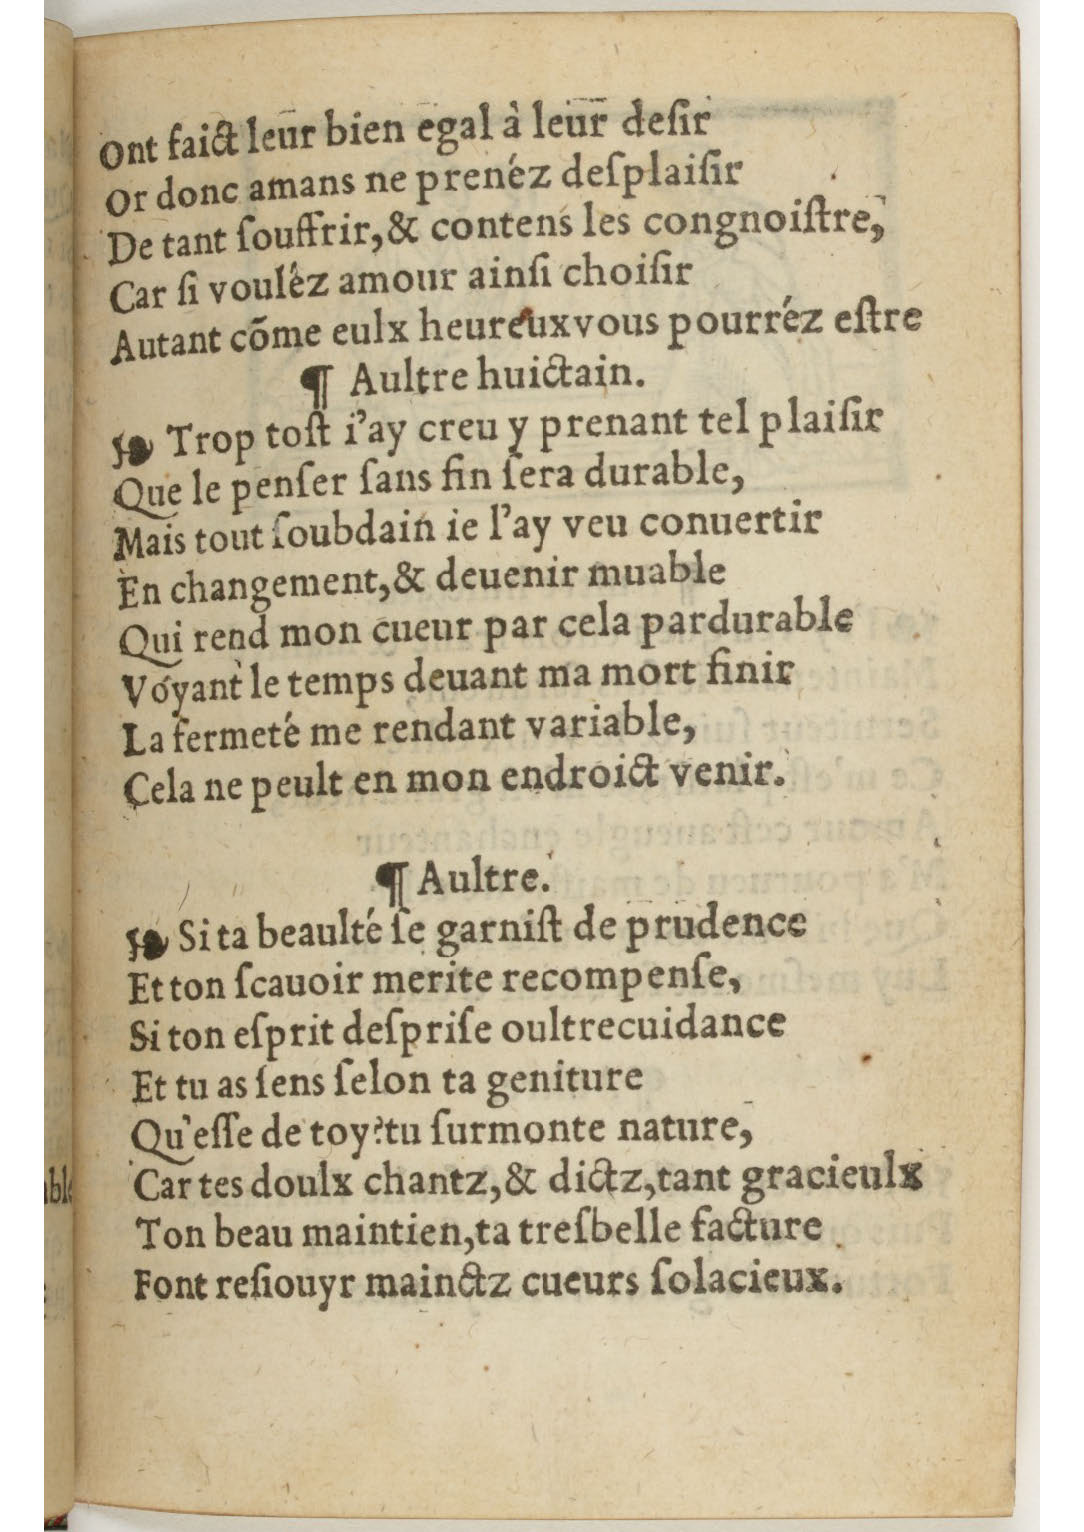 Ont faict leur bien egal à leur deſir
Or donc amans ne prenéz deſplaiſir
De tant ſouffrir,& contens les congnoiſtre,
Car ſi vouléz amour ainſi choiſir
Autant cõme eulx heureux vous pourréz eſtre
¶ Aultre huictain.
❧ Trop toſt i'ay creu y prenant tel plaiſir
Que le penſer ſans fin ſera durable,
Mais tout ſoubdain ie l'ay veu conuertir
En changement,& deuenir muable
Qui rend mon cueur par cela pardurable
Voyant le temps deuant ma mort finir
La fermeté me rendant variable,
Cela ne peult en mon endroict venir.
¶ Aultre.
❧ Si ta beaulté ſe garniſt de prudence
Et ton ſcauoir merite recompenſe,
Si ton eſprit deſpriſe oultrecuidance
Et tu as ſens ſelon ta geniture
Qu'eſſe de toy?tu ſurmonte nature,
Car tes doulx chantz,& dictz,tant gracieulx
Ton beau maintien,ta treſbelle facture
Font reſiouyr mainctz cueurs ſolacieux.